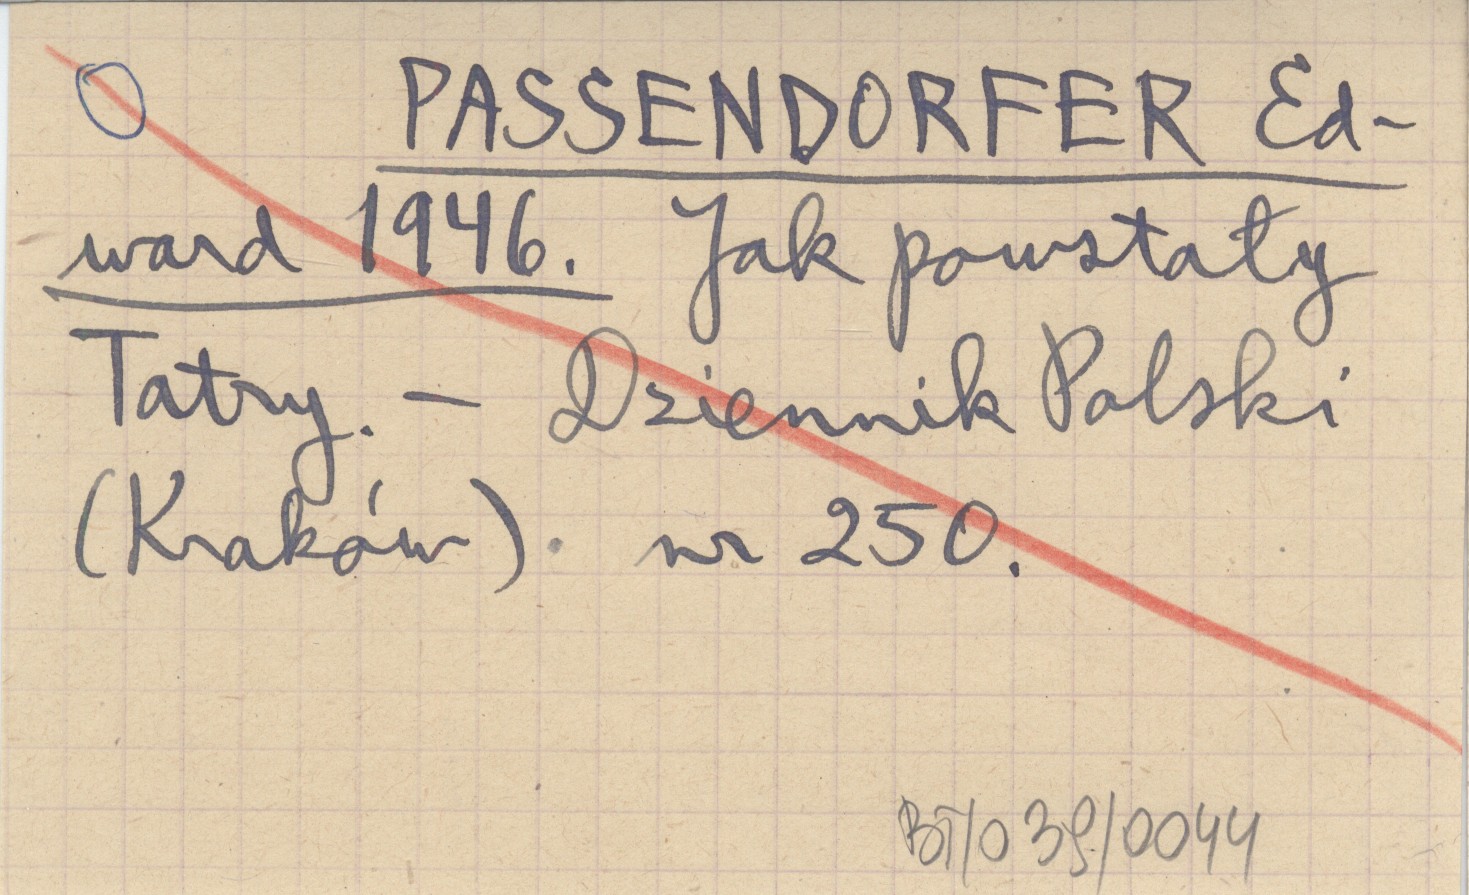 PASSENDORFER Ed-
ward 1946. Jak powstały
Tatry. - Dziennik Polski
(Kraków). nr 250.
BT/039/0044